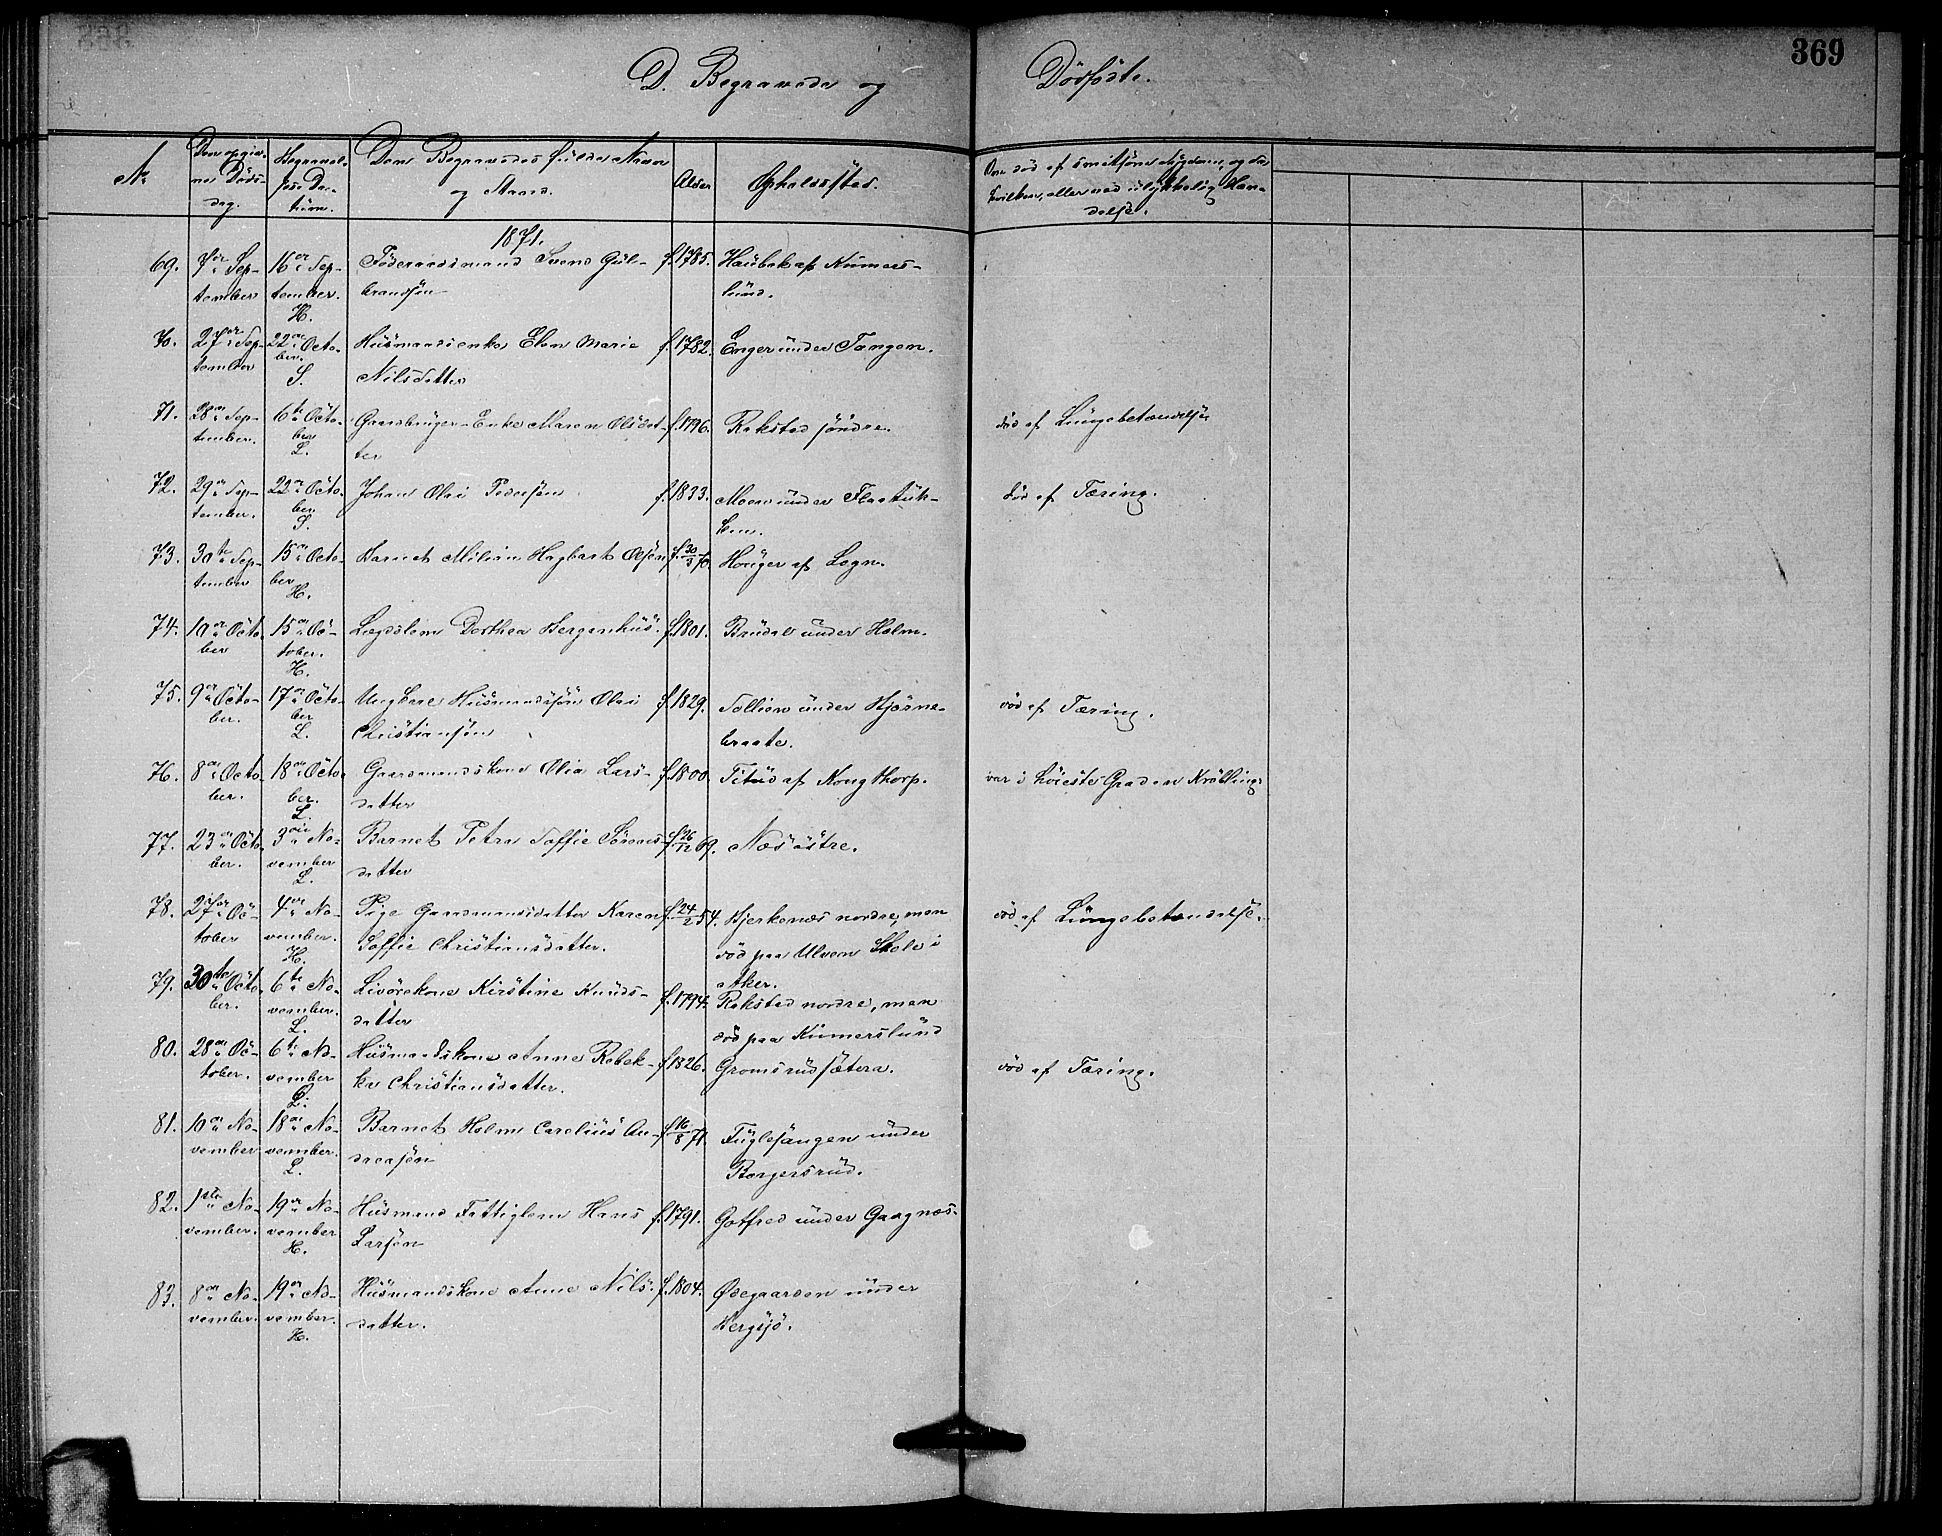 369
D. Begravede og Dödfödte.
No
Den opgivne Dödsdag.
Begravelsens Datum.
Den Begravedes fulde Navn og Stand.
Alder
Opholdssted.
Om död af smitsom Sygdom, og da hvilken, eller ved ulykkelig Hændelse.
1871.
69. 7de September 16de September. H. Föderaadsmand Svend Gulbrandsön f. 1785. Haubak af Kumerslund.
70. 27de September 22de October. S. Husmandsenke Elen Marie Nilsdatter f. 1782. Enger under Tangen.
71. 28de September. 6te October L. Gaardbruger-Enke Maren Olsdatter f. 1796. Rakstad söndre. död af Lungebetændelse
72. 29de September. 22de October S. Johan Olai Pedersön f. 1833. Moen under Flaatukken. död af Tæring.
73. 30te September 15de October H. Barnet Milian Hagbart Olsön f. 30/5 70. Houger af Logn.
74. 10de October 15de October. H. Lægdslem Dorthea Bergenhus. f. 1801. Brudal under Holm.
75. 9de October. 17de October L. Ungkarl Husmandssön Olai Christiansön f. 1829. Sollien under Hjernebraate. död af Tæring.
76. 8de October. 18de October. L. Gaardmandskone Olia Larsdatter f. 1800. Titud af Kongthorp. var i höieste Graden Krölling
77. 23de October. 3die November L. Barnet Petra Soffie Sörensdatter f. 26/12 69. Næs östre.
78. 27de October 4de November. H. Pige Gaardmandsdatter Karen Soffie Christiansdatter. f. 24/2 54. Hjerkenæs nordre, men död paa Ulven Skole i Aker. död af Lungebetændelse.
79. 30te October. 6te November. L. Livörekone Kirstine Knudsdatter f. 1794. Rakstad nordre, men död paa Kumerslund
80. 28de October. 6te November L. Husmandskone Anne Rebekka Christiansdatter. f. 1826. Gromsrudsætera. död af Tæring.
81. 10de November 18de November. L. Barnet Halm Carelius Andreasön f. 16/8 71. Fuglesangen under Borgersrud.
82. 1ste November. 19de November H. Husmand Fattiglem Hans Larsön f. 1791. Gotfred under Gaagnæs.
83. 8de November. 19de November. H. Husmandskone Anne Nilsdatter. f. 1804. Ödegaarden under Bergsjö.